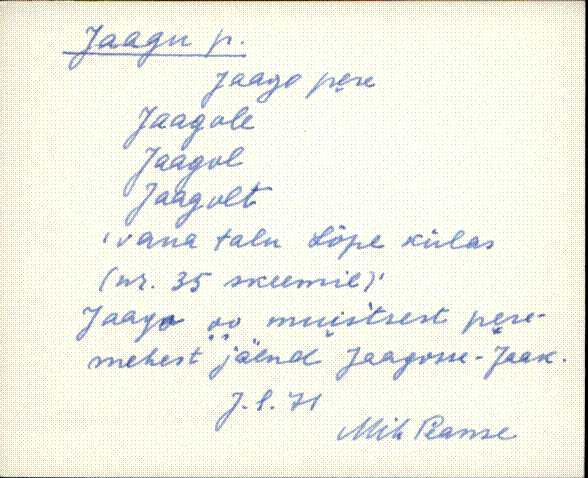 Jaagu p.
Jaago pere
Jaagole
Jaagol
Jaagolt
'vana talu Lõpe külas
(nr. 35 skeemil)'
Jaago oo muistsest pere-
mehest jäend Jaagosse-Jaak.
71
Mih